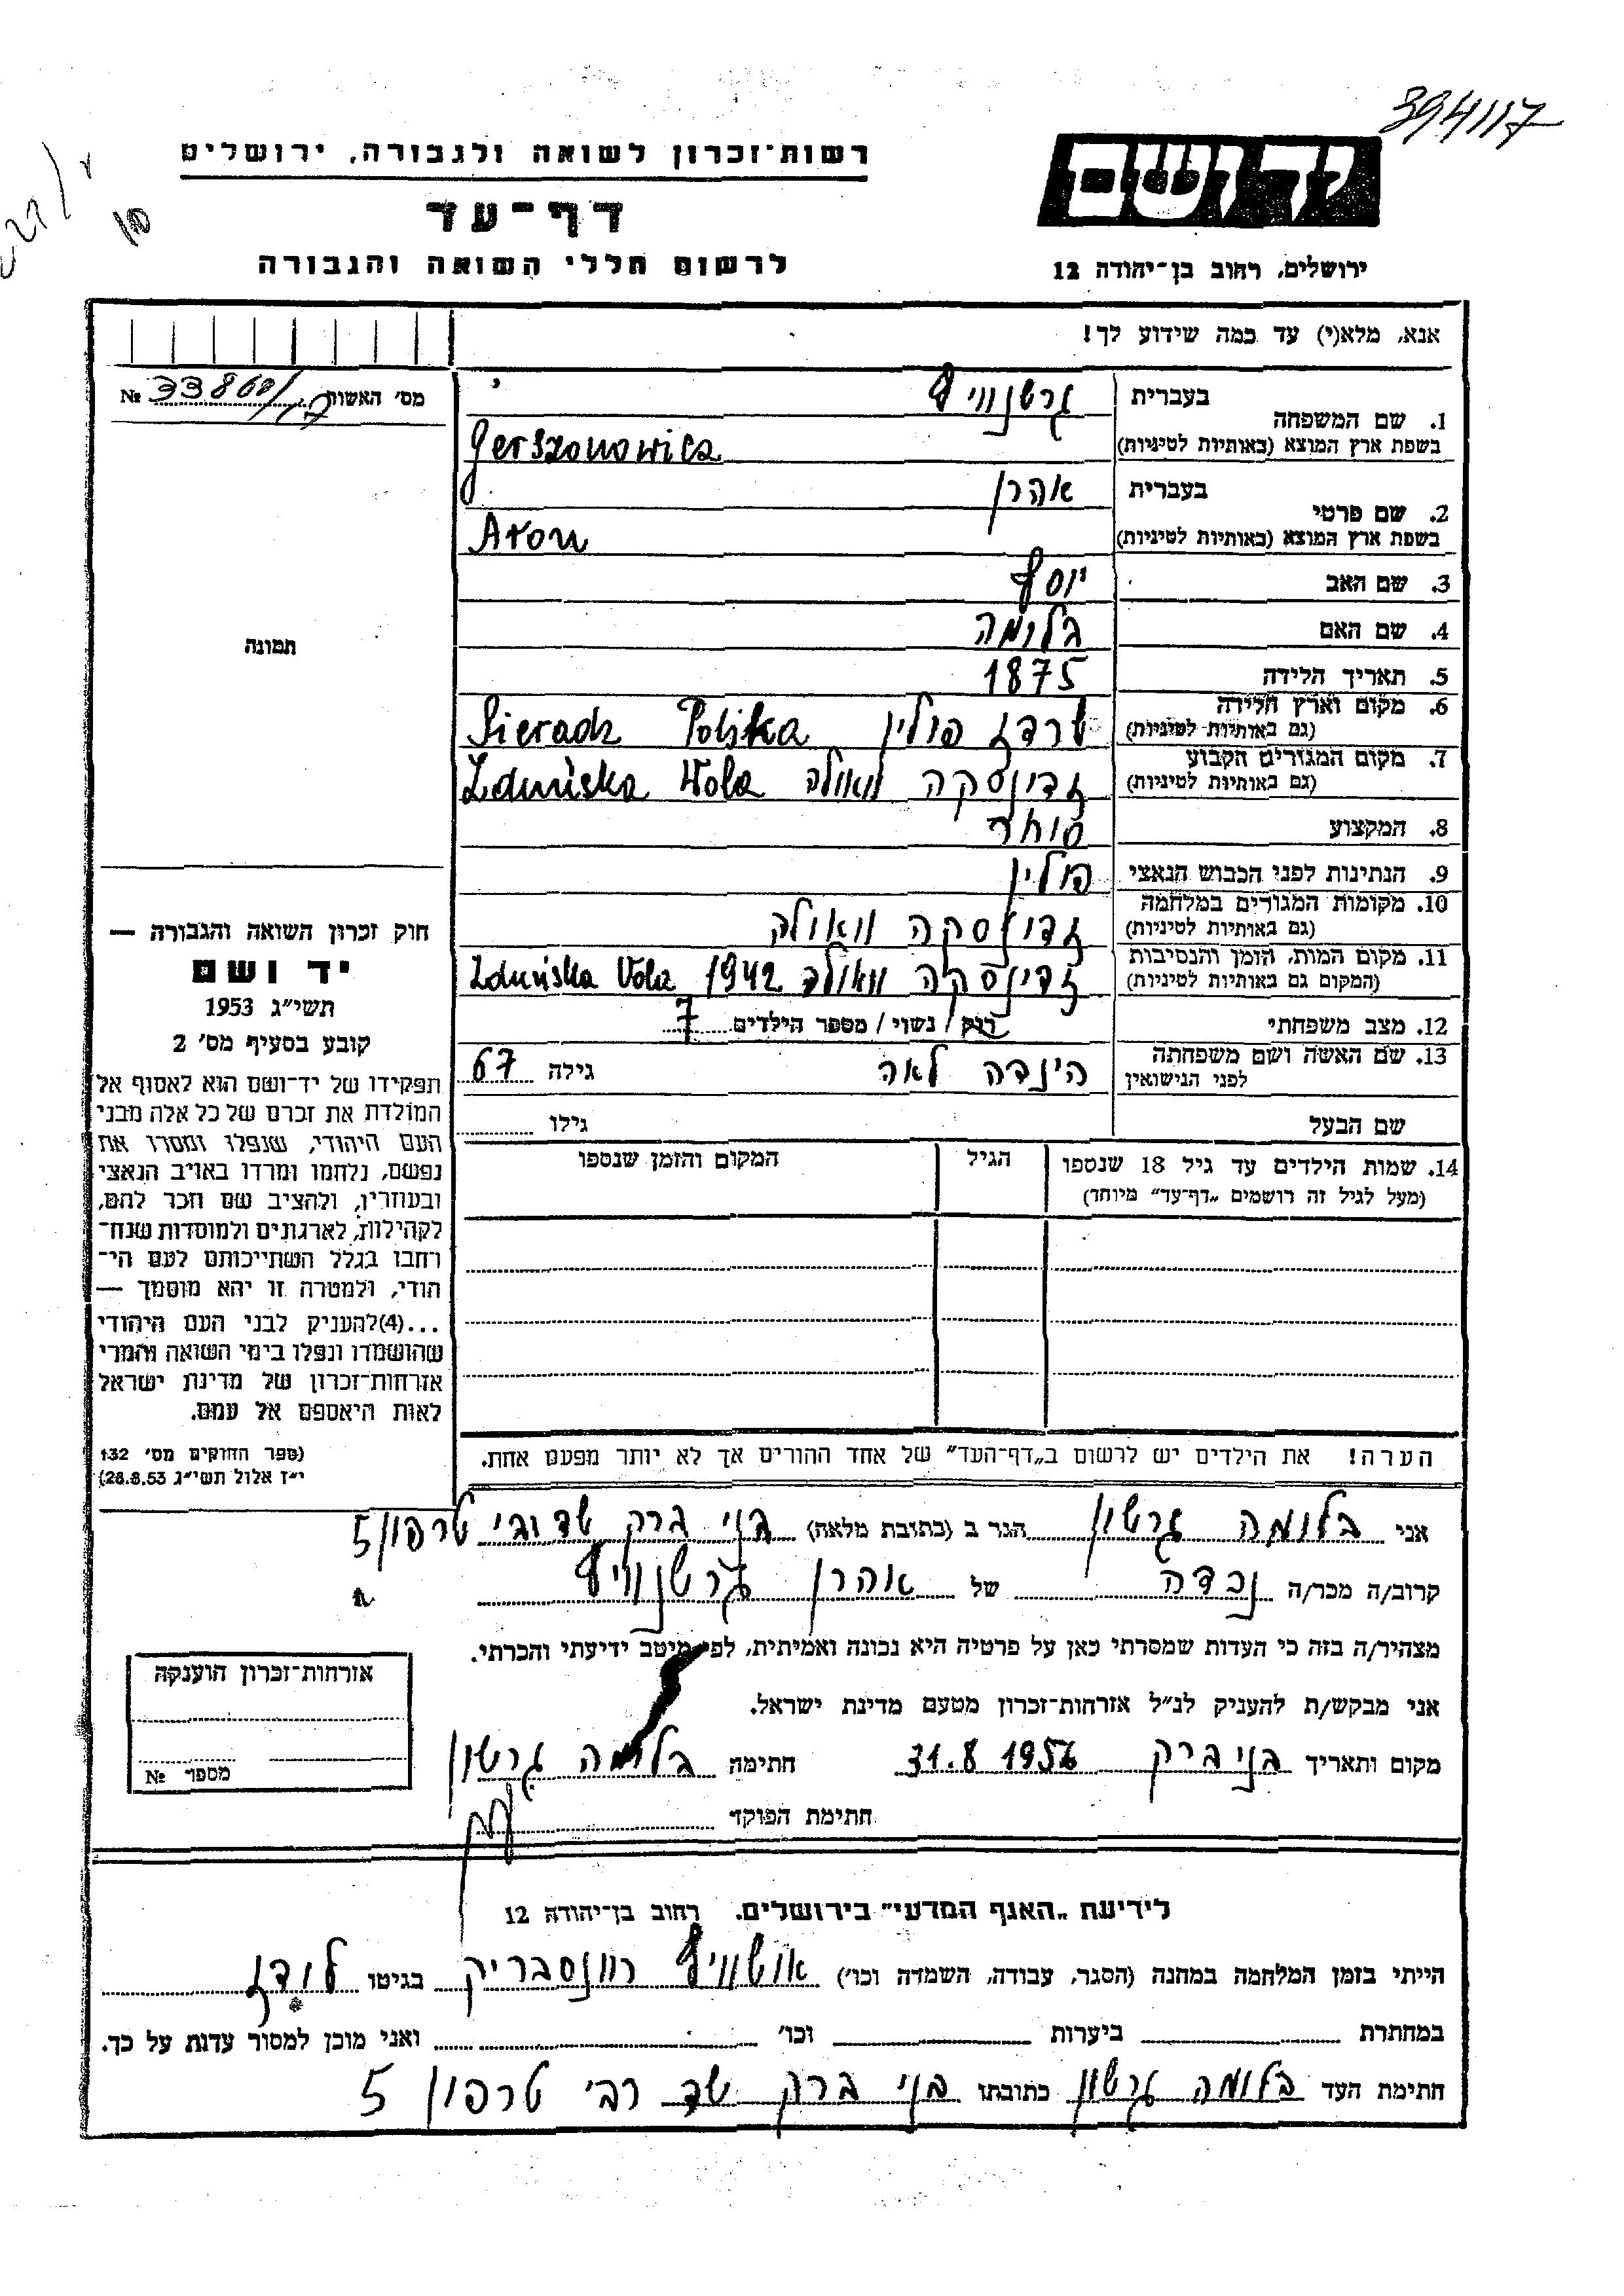 394117
יד ושם
רשות-זכרון לשואה ולגבורה, ירושלים
דף-עד
לרשום חללי השואה והגבורה
ירושלים, רחוב בן-יהודה 12
אנא, מלא(י) עד כמה שידוע לך!
מס' האשות № 33860/17
1. שם המשפחה בעברית גרשנוויץ
בשפת ארץ המוצא (באותיות לטיניות) Gerszonowicz
2. שם פרטי בעברית אהרן
בשפת ארץ המוצא (באותיות לטיניות) Aron
3. שם האב יוסף
4. שם האם בלומה
5. תאריך הלידה 1875
6. מקום וארץ הלידה
(גם באותיות לטיניות) שרדז פולין Sieradz Polska
7. מקום המגורים הקבוע
(גם באותיות לטיניות) זדונסקה וואולה Zduńska Wola
8. המקצוע סוחר
9. הנתינות לפני הכבוש הנאצי פולין
10. מקומות המגורים במלחמה
(גם באותיות לטיניות) זדונסקה וואולה
11. מקום המות, הזמן והנסיבות
(המקום גם באותיות לטיניות) זדינסקה וואולה 1942 Zduńska Vola
12. מצב משפחתי רווק / נשוי / מספר הילדים 7
13. שם האשה ושם משפחתה
לפני הנישואין הינדה לאה גילה 67
שם הבעל גילו
14. שמות הילדים עד גיל 18 שנספו הגיל המקום והזמן שנספו
(מעל לגיל זה רושמים „דף-עד" מיוחד)
הערה! את הילדים יש לרשום ב„דף-העד" של אחד ההורים אך לא יותר מפעם אחת.
תמונה
חוק זכרון השואה והגבורה —
יד ושם
תשי"ג 1953
קובע בסעיף מס' 2
תפקידו של יד-ושם הוא לאסוף אל
המולדת את זכרם של כל אלה מבני
העם היהודי, שנפלו ומסרו את
נפשם, נלחמו ומרדו באויב הנאצי
ובעוזריו, ולהציב שם וזכר להם,
לקהילות, לארגונים ולמוסדות שנח-
רבו בגלל השתייכותם לעם הי-
הודי, ולמטרה זו יהא מוסמך —
...(4) להעניק לבני העם היהודי
שהושמדו ונפלו בימי השואה והמרי
אזרחות-זכרון של מדינת ישראל
לאות היאספם אל עמם.
(ספר החוקים מס' 132
י"ז אלול תשי"ג 28.8.53)
אני בלומה גרשון הגר ב (כתובת מלאה) בני ברק שד רבי טרפון 5
קרוב/ה מכר/ה נכדה של אהרן גרשנוויץ
מצהיר/ה בזה כי העדות שמסרתי כאן על פרטיה היא נכונה ואמיתית, לפי מיטב ידיעתי והכרתי.
אני מבקש/ת להעניק לנ"ל אזרחות-זכרון מטעם מדינת ישראל.
מקום ותאריך בני ברק 31.8 1956 חתימה בלומה גרשון
חתימת הפוקד
אזרחות-זכרון הוענקה
מספר №
לידיעת „האגף המדעי" בירושלים. רחוב בן-יהודה 12
הייתי בזמן המלחמה במחנה (הסגר, עבודה, השמדה וכו') אושוויץ רוונסבריק בגיטו לודז
במחתרת ביערות וכו' ואני מוכן למסור עדות על כך.
חתימת העד בלומה גרשון כתובתו בני ברק שד רבי טרפון 5